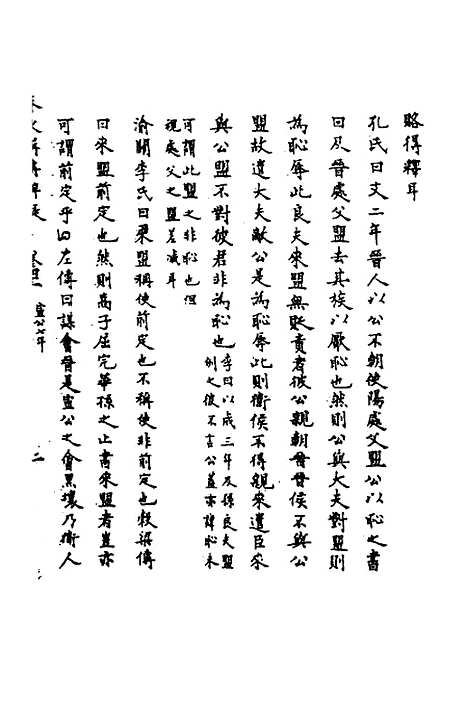 略得釋耳
孔氏曰文二年晉人以公不朝使陽處父盟公以恥之書
曰及晉處父盟去其族以厭恥也然則公與大夫對盟則
為恥辱此良夫來盟無貶責者彼公親朝晉晉侯不與公
盟故遣大夫敵公是為恥辱此則衛侯不得親來遣臣來
與公盟不對彼君非為恥也李曰以成三年及孫良夫盟
例之彼不言公蓋亦諱恥未
可謂此盟之非恥也但
視處父之盟差減耳
渝關李氏曰來盟稱使前定也不稱使非前定也穀梁傳
曰來盟前定也然則高子屈完華孫之止書來盟者豈亦
可謂前定乎曰左傳曰謀會晉是宣公之會黑壤乃衛人
宣公七年
二